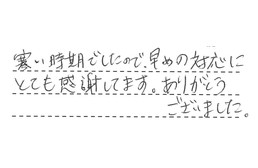 寒い時期でしたので、早めの対応に
とても感謝してます。ありがとう
ございました。